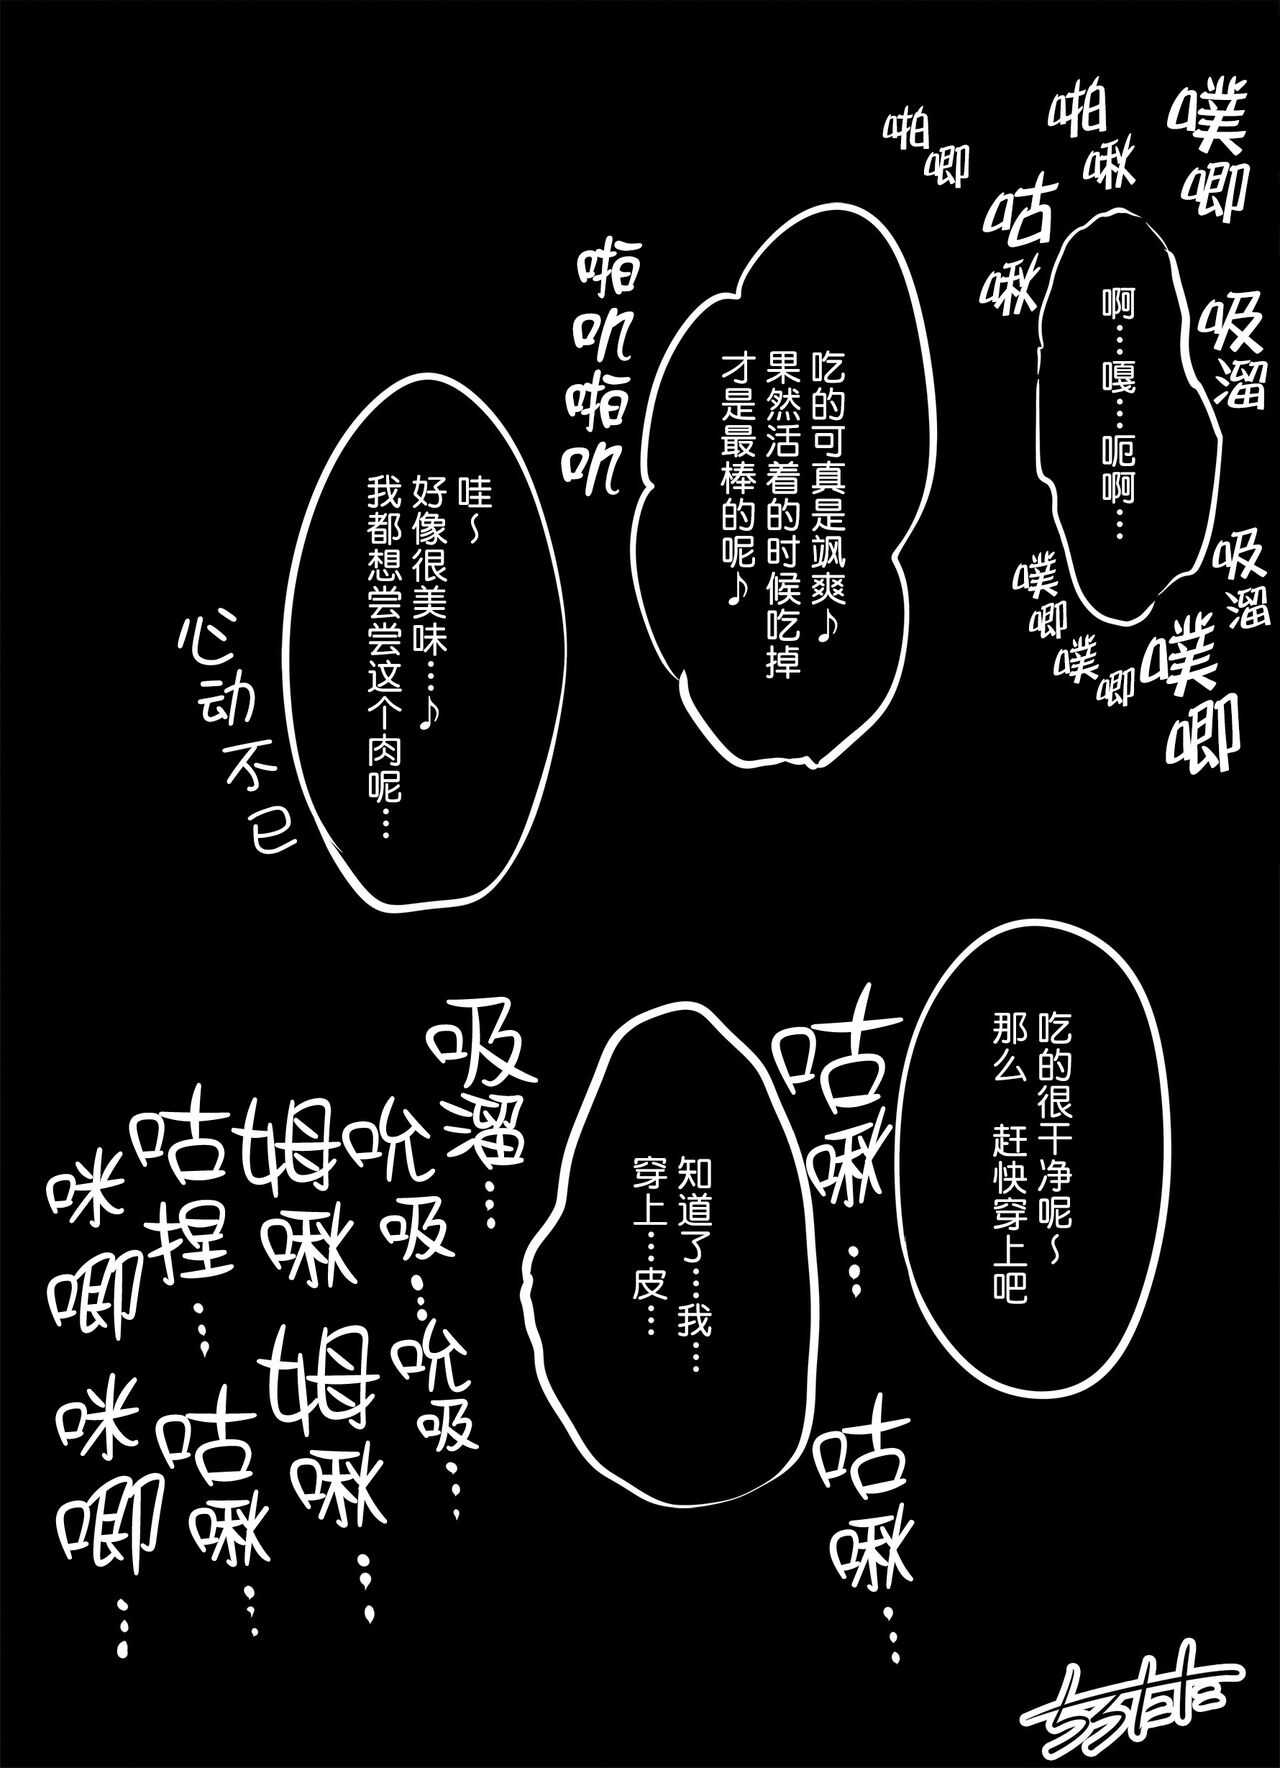 噗唧
啪啾
啪唧
咕啾
吸溜
啊…嘎…呃啊…
吸溜
噗唧
噗唧
噗唧
吃的可真是飒爽♪
果然活着的时候吃掉
才是最棒的呢♪
啪叽啪叽
哇～
好像很美味…♪
我都想尝尝这个肉呢…
心动不已
吃的很干净呢～
那么 赶快穿上吧
咕啾…
知道了…我…
穿上…皮…
咕啾…
吸溜…
吮吸…
吮吸…
姆啾
姆啾…
咕捏…
咕啾…
咪唧
咪唧…
ちろたた